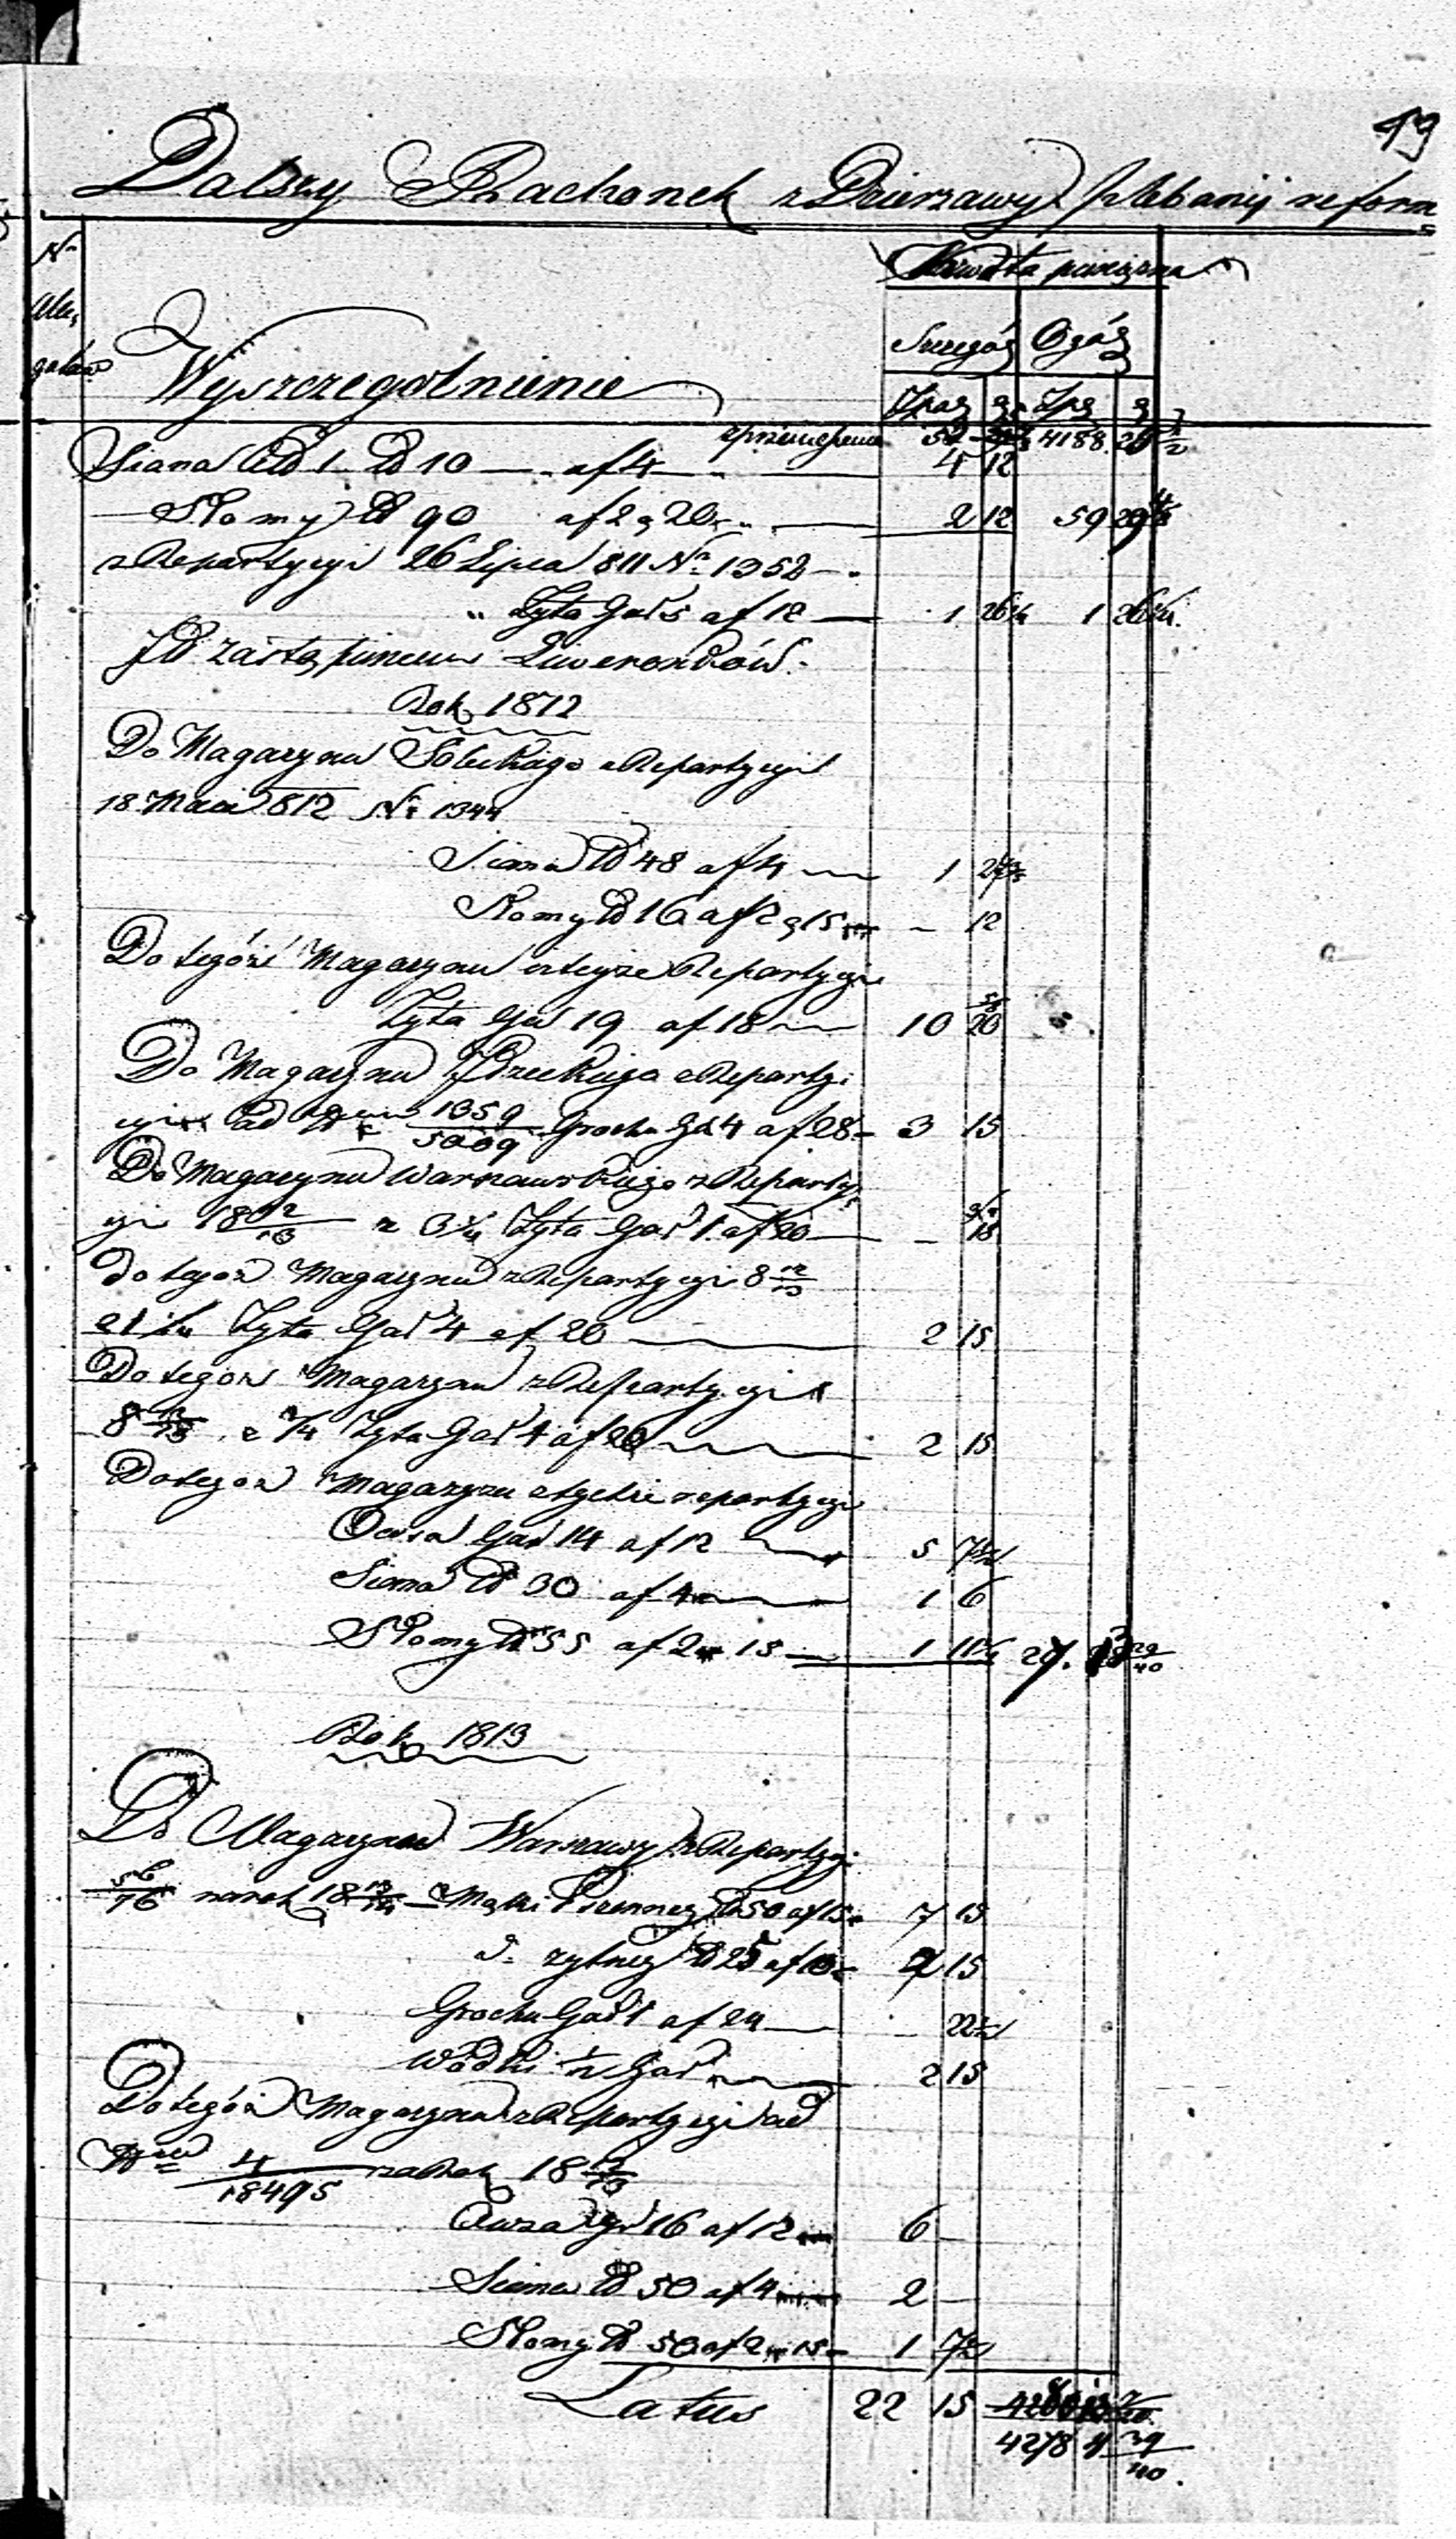 19
Dalszy Rachonek z Dzierzawy Plebanij reform
Nr
Alle
gatów
Wyszczegolnienie
Kwota pieniężna
Szczegół Ogół
Zpol g. Zpl g
z przeniesienia 52 4188. 26 1/2
Siana ℔ 1 ℔ 10 — af 4 — 4 12
Słomy ℔ 90 af 2 g 20 — 2 12 59 29
z Repartycyi 26 Lipca 811 Nr 1352 —
" Żyta Gar 5 af 12 — 1 26 1/4 1 26 1/4
Id zastąpienia Liweronków.
Rok 1812
Do Magazynu Soleckiego z Repartycyi
18 Maia 812 Nr 1344
Siana ℔ 48 af 4 — 1 27
Słomy ℔ 16 af 2 g 15 — 12
Do tegóż Magazynu z teyże Repartycyi
Żyta Gar 19 af 18 — 10 20
Do Magazynu z Reparty
cyi ad Nrum 1359/5009 Grochu Gar 4 af 28 — 3 15
Do Magazynu Warszawskiego z Reparty
cyi 18 12/13 z 3/4 Żyta Gar 1 af 20 — 18
do tegoż Magazynu z Repartycyi 8 12/13
Żyta Gar 4 af 20 — 2 15
Do tegoż Magazynu z Repartycyi
8 12/13 z 1/4 Żyta Gar 4 af 20 — 2 15
Do tegoż Magazynu z tychże repartycyi
Owsa Gar 14 af 12 — 5 7 1/2
Siana ℔ 30 af 4 — 1 6
Słomy ℔ 55 af 2 " 15 — 1 11 1/4 27. 29/40
Rok 1813
Do Magazynu Warszawy z Repartycyi
56/76 na rok 18 — Mąki Pszenney ℔ 50 af 15 — 7 15
d. żytney ℔ 25 af 10 — 2 15
Grochu Gar 1 af 24 — 22 1/2
Wódki 1/2 Gar — 2 15
Do tegóż Magazynu z Repartycyi ad
Nrum 4/18495 za Rok 18 12/13
Owsa Gar 16 af 12 — 6 —
Siana ℔ 50 af 4 — 2 —
Słomy ℔ 50 af 2 " 15 — 1 7 1/2
Latus 22 15
4278 11 39/40.